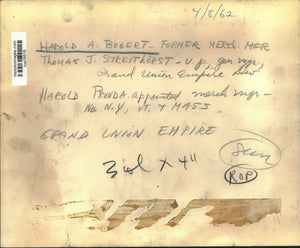 4/8/62
HAROLD A. BOGERT - FORMER MERCH. MGR
THOMAS J. STREITHORST - V.P., gen mgr,
Grand Union Empire Div
HAROLD PROVDA - appointed merch mgr -
No N.Y, VT. & MASS
GRAND UNION EMPIRE
3 col x 4"
ROP